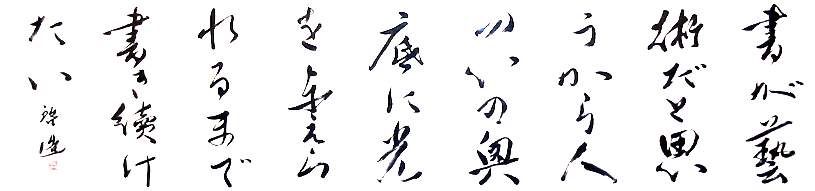 書が藝
術だと思
うから人
心の奥
底に光
を與えら
れるまで
書き續け
たい